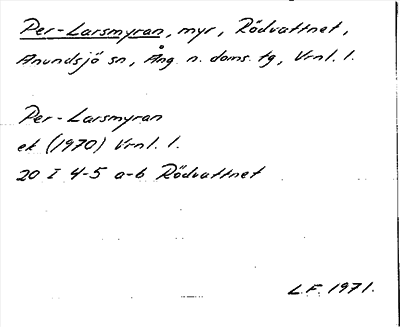 Per-Larsmyran, myr, Rödvattnet,
Anundsjö sn, Ång. n. doms. tg, Vrnl. l.
Per-Larsmyran
ek (1970) Vrnl. l.
20 I 4-5 a-b Rödvattnet
L.F. 1971.